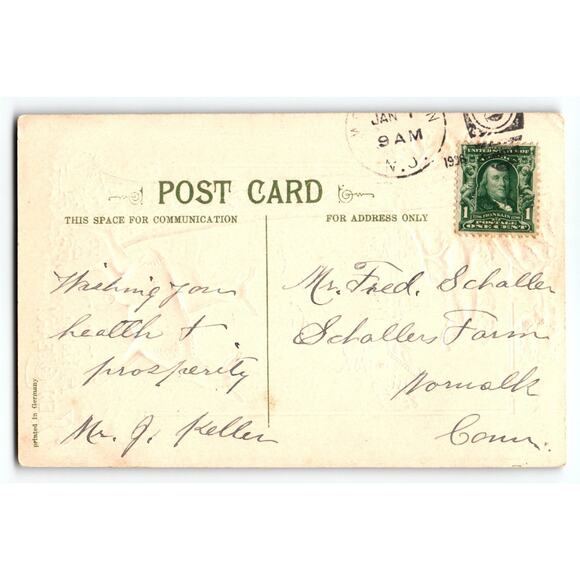 JAN 1
9 AM
N.J.
UNITED STATES OF
1 FRANKLIN 1
POSTAGE
ONE CENT
POST CARD
THIS SPACE FOR COMMUNICATION
FOR ADDRESS ONLY
Wishing you
health +
prosperity
Mr. J. Keller
Mr. Fred. Schaller
Schallers Farm
Norwalk
Conn.
printed in Germany